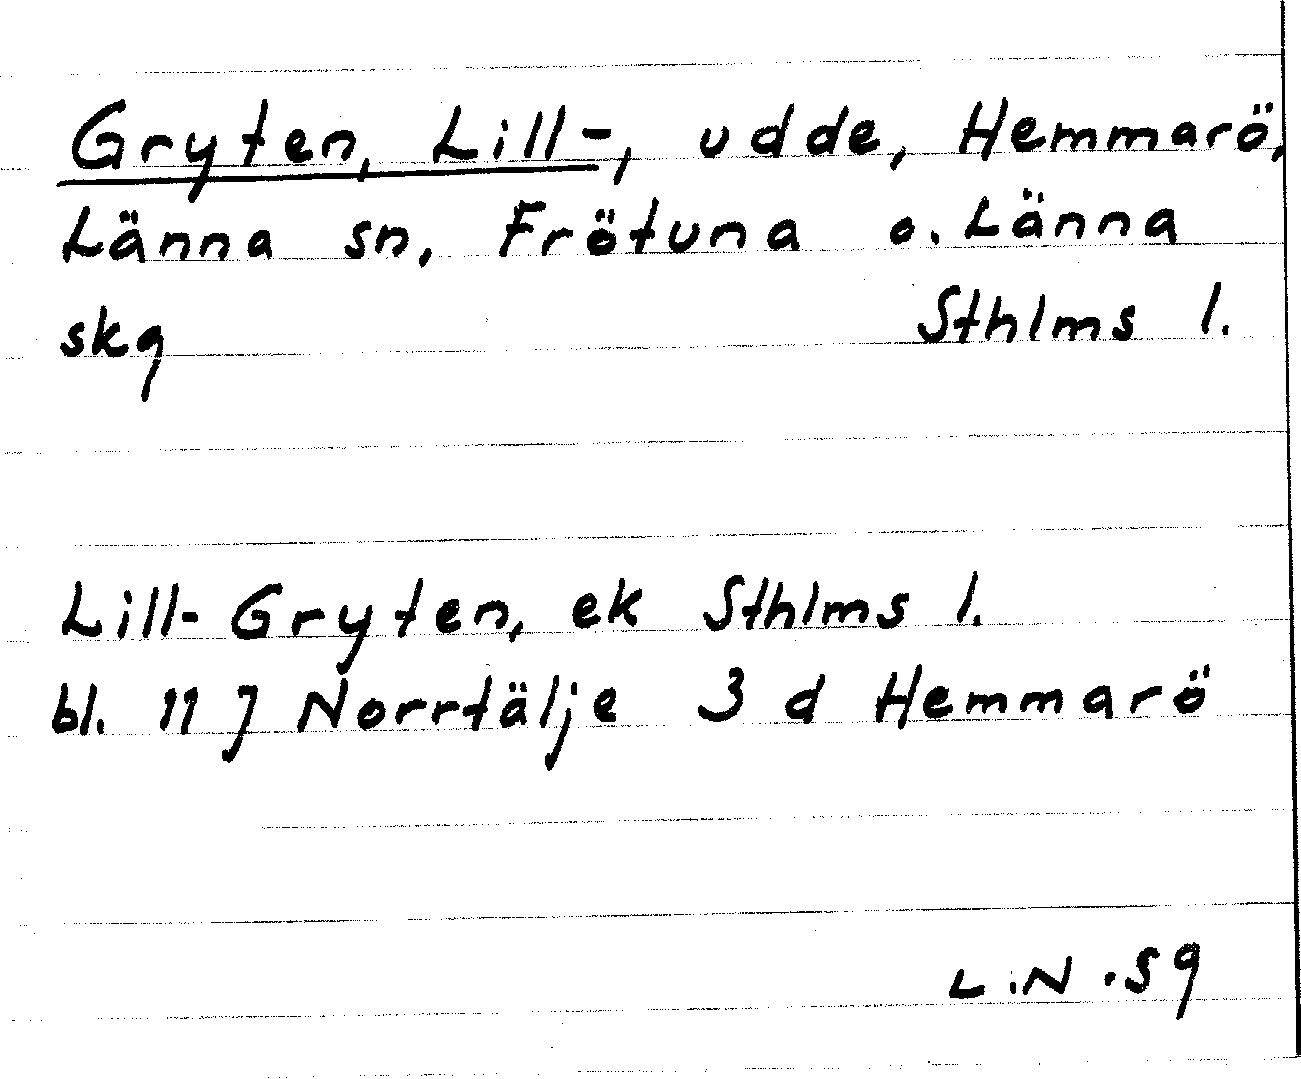 Gryten, Lill-, udde, Hemmarö,
Länna sn, Frötuna o. Länna
skg Sthlms l.
Lill-Gryten, ek Sthlms l.
bl. 11 J Norrtälje 3 d Hemmarö
L.N.59